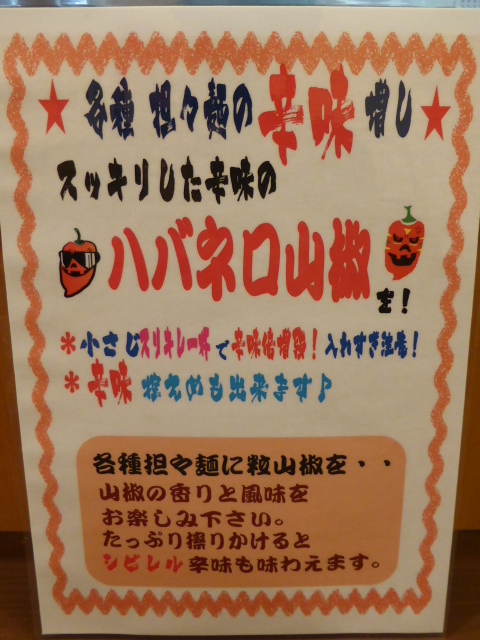 ★各種 担々麺の辛味増し★
スッキリした辛味の
ハバネロ山椒を！
＊小さじスリキレ一杯で辛味倍増段！入れすぎ注意！
＊辛味 控えめも出来ます♪
各種担々麺に粒山椒を・・
山椒の香りと風味を
お楽しみ下さい。
たっぷり擦りかけると
シビレル辛味も味わえます。